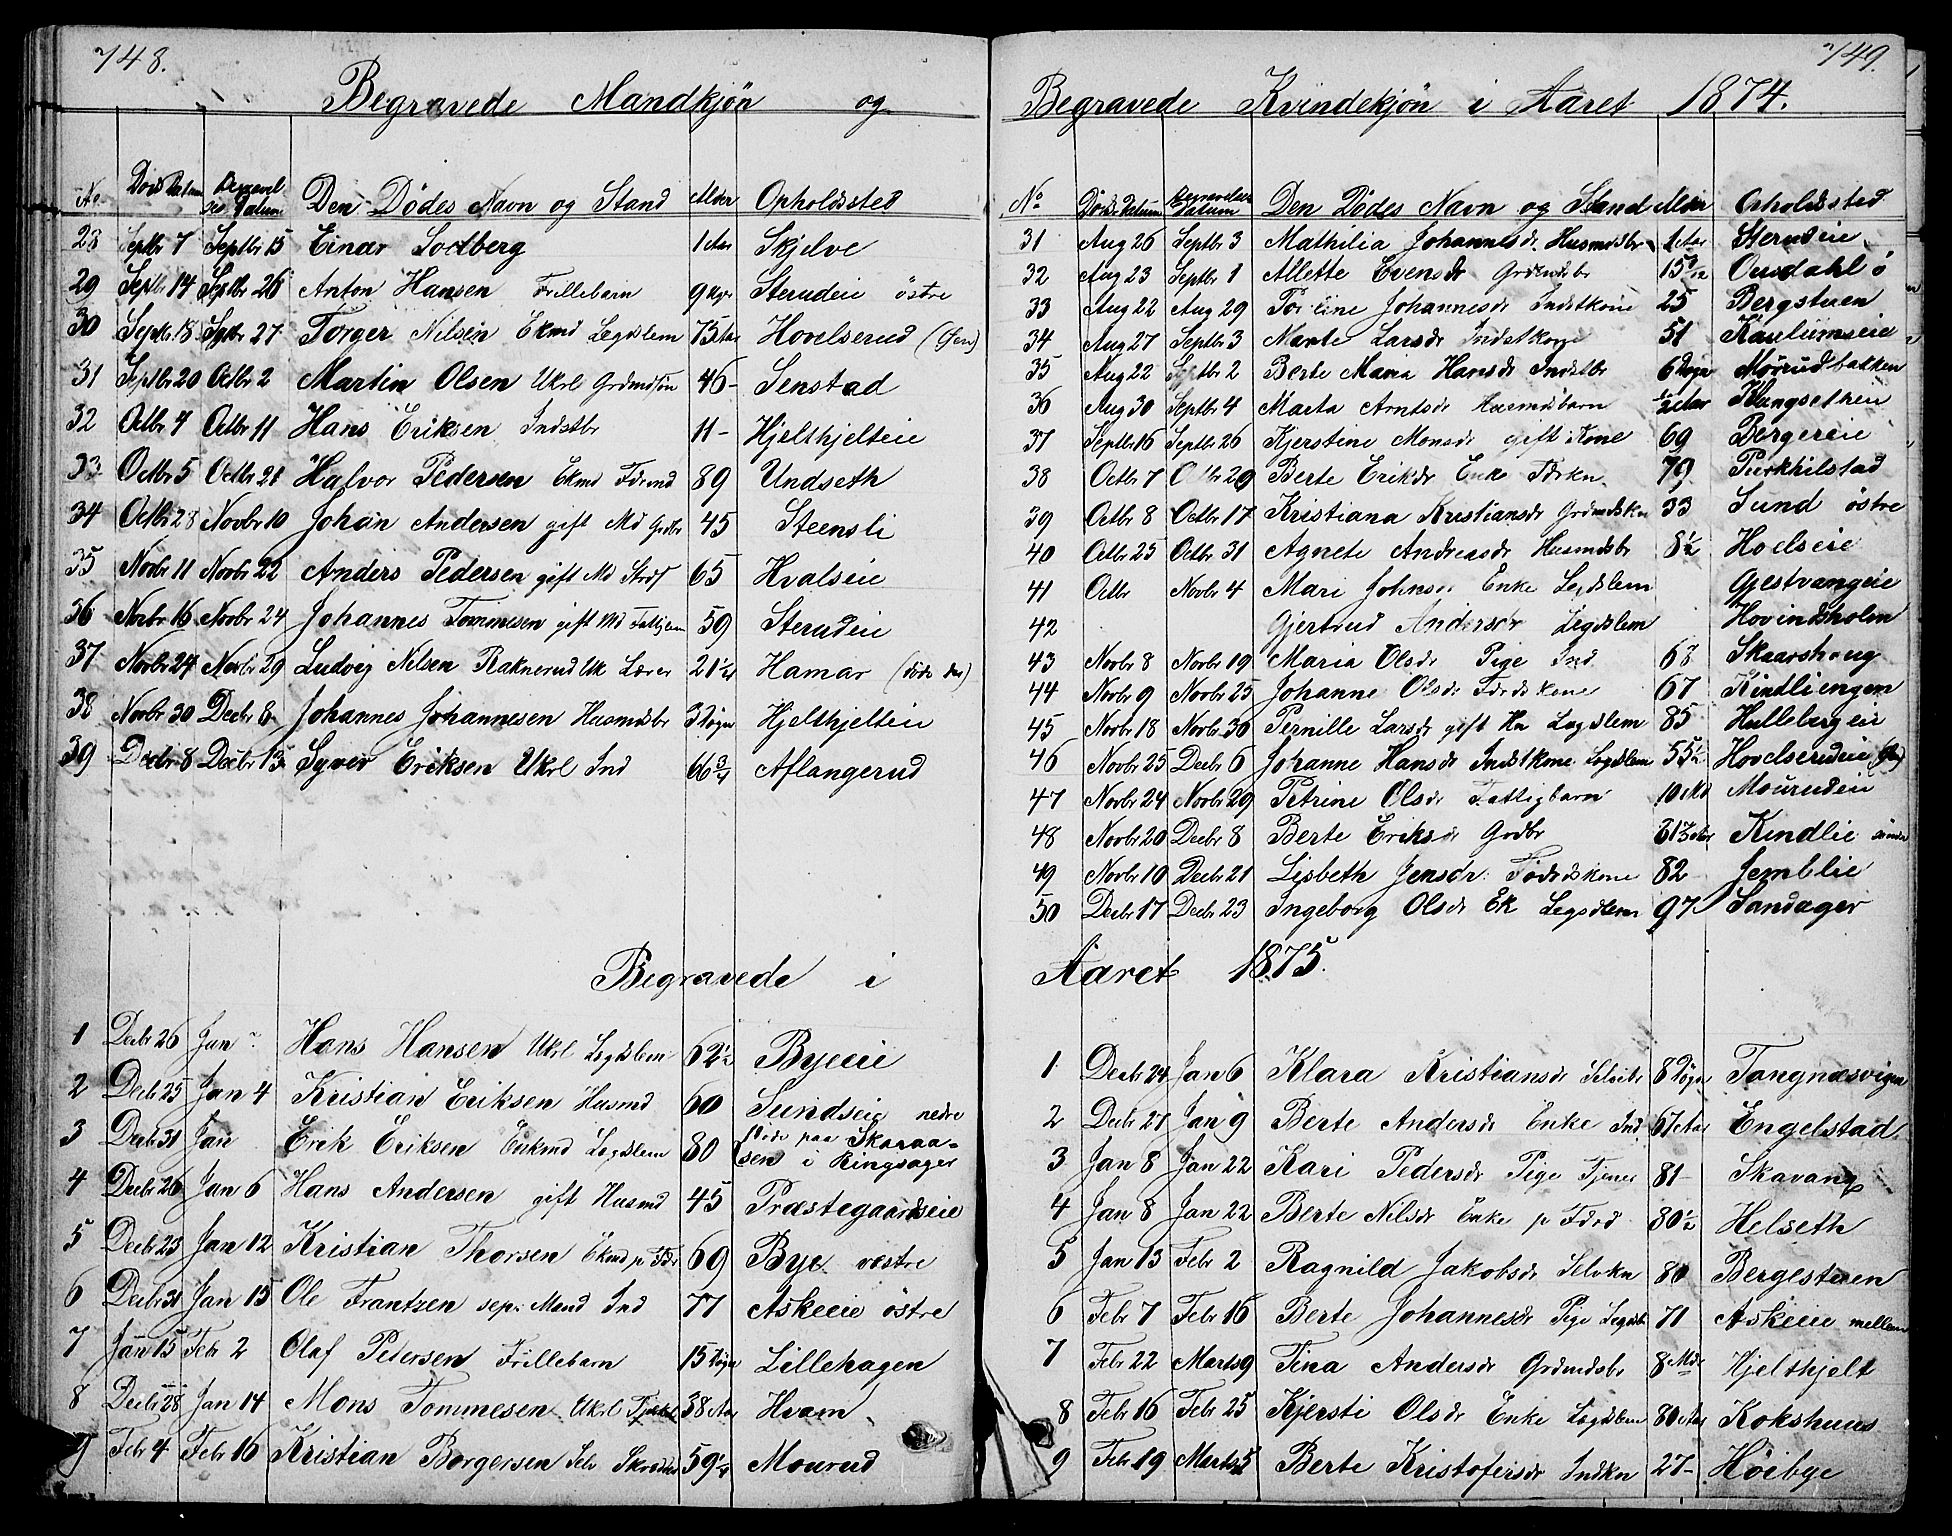 748.
Begravede Mandkjøn og
No Døds Datum Begravelses Datum Den Dødes Navn og Stand Alder Opholdssted
28 Septbr 7 Septbr 15 Einar Sodberg 1 Aar Skjelve
29 Septbr 14 Septbr 26 Anton Hansen Frillebarn 9 Uger Sterudeie østre
30 Septbr 18 Septbr 27 Torger Nilsen Ekmd Legdslem 75 Aar Hovelserud (Øen)
31 Septbr 20 Octbr 2 Martin Olsen Ukrl Grdmdsøn 46 - Senstad
32 Octbr 4 Octbr 11 Hans Eriksen Indstbr 11 - Hjelthjelteie
33 Octbr 5 Octbr 21 Halvor Pedersen Ekmd Fdrmd 89 Undseth
34 Octbr 28 Novbr 10 Johan Andersen gift Md Grdbr 45 Steensli
35 Novbr 11 Novbr 22 Anders Pedersen gift Md 65 Hvalseie
36 Novbr 16 Novbr 24 Johannes Tommesen gift Md 59 Sterudeie
37 Novbr 24 Novbr 29 Ludvig Nilsen Raknerud Uk Lærer 21 1/4 Hamar (døde der)
38 Novbr 30 Decbr 8 Johannes Johannesen Husmdsbr 3 Døgn Hjelthjelteie
39 Decbr 8 Decbr 13 Syver Eriksen Ukrl Ind 66 3/4 Aflangerud
Begravede i
1 Decbr 26 Jan Hans Hansen Ukrl Legdslem 62 1/2 Byeeie
2 Decbr 25 Jan 4 Kristian Eriksen Husmd 60 Sundseie nedre
3 Decbr 31 Jan Erik Eriksen Enkmd Legdslem 80 (døde paa Skaraa-
sen i Ringsager
4 Decbr 26 Jan 6 Hans Andersen gift Husmd 45 Præstegaardseie
5 Decbr 23 Jan 12 Kristian Thorsen Ekmd p Fdr 69 Bye vestre
6 Decbr 31 Jan 15 Ole Frantzen sep. Mand Ind 77 Askeeie østre
7 Jan 15 Febr 2 Olaf Pedersen Frillebarn 15 Døgn Lillehagen
8 Decbr 28 Jan 14 Mons Tommesen Ukrl 38 Aar Hvam
9 Febr 4 Febr 16 Kristian Borgersen Selv 59 1/4 Mourud
749.
Begravede Kvindekjøn i Aaret 1874.
No Døds Datum Begravelses Datum Den Dødes Navn og Stand Alder Opholdssted
31 Aug 26 Septbr 3 Mathilia Johannesdr Husmdsbr 1 Aar Sterudeie
32 Aug 23 Septbr 1 Allette Evensdr Grdmdsbr 15 Ousdahl ø
33 Aug 22 Aug 29 Johannesdr Indstkone 25 Bergstuen
34 Aug 27 Septbr 3 Marte Larsdr Indstkone 51 Kaulumseie
35 Aug 22 Septbr 2 Berte Maria Hansdr Indstbr 6 Døgn Mourudbakken
36 Aug 30 Septbr 4 Marta Arntsdr Husmdsbarn 1/2 Aar
37 Septbr 16 Septbr 26 Kjerstine Monsdr gift Kone 69 Borgereie
38 Octbr 7 Octbr 29 Berte Eriksdr Enke Fdrkn 79 Purkhilstad
39 Octbr 8 Octbr 17 Kristiana Kristiansdr Grdmdskn 33 Sund østre
40 Octbr 25 Octbr 31 Agnete Andreasdr Husmdsbr 8 1/2 Hoelseie
41 Octbr Novbr 4 Mari Johnsdr Enke Legdslem Gjestvangeie
42 Gjertrud Andersdr Legdslem Hovindsholm
43 Novbr 8 Novbr 19 Maria Olsdr Pige Ind 68 Skaarshoug
44 Novbr 9 Novbr 25 Johanne Olsdr Fdrdskone 67 Kindliengen
45 Novbr 18 Novbr 30 Pernille Larsdr gift Kn Legdslem 85 Hullebergeie
46 Novbr 25 Decbr 6 Johanne Hansdr Indstkone Legdslem 55 1/2 Hovelserudeie (Øen)
47 Novbr 24 Novbr 29 Petrine Olsdr Fattigbarn 10 Md Mourudeie
48 Novbr 20 Decbr 8 Berte Eriksdr Grdbr Kindlie søndre
49 Novbr 10 Decbr 21 Lisbeth Jensdr Føderådskone 82 Jemblie
50 Decbr 17 Decbr 23 Ingeborg Olsdr Ek Legsdlem 97 Sandager
Aaret 1875.
1 Decbr 24 Jan 6 Klara Kristiansdr Selveibr 8 Døgn Tangnæsvigen
2 Decbr 27 Jan 9 Berte Andersdr Enke Ind 67 Aar Engelstad
3 Jan 8 Jan 22 Kari Pedersdr Pige Tjener 81 - Skavang
4 Jan 8 Jan 22 Berte Nilsdr Enke p Fdrd 80 1/2 Helseth
5 Jan 13 Febr 2 Ragnild Jakobsdr Selvkn 80 Bergestuen
6 Febr 7 Febr 16 Berte Johannesdr Pige Legdsl 71 Askeeie mellem
7 Febr 22 Marts 9 Tina Andersdr Grdmdsbr 8 Mdr Hjelthjelt
8 Febr 16 Febr 25 Kjersti Olsdr Enke Legdslem 80 Aar Kokshuus
9 Febr 19 Marts 5 Berte Kristofersdr Indkn 27 - Høibye